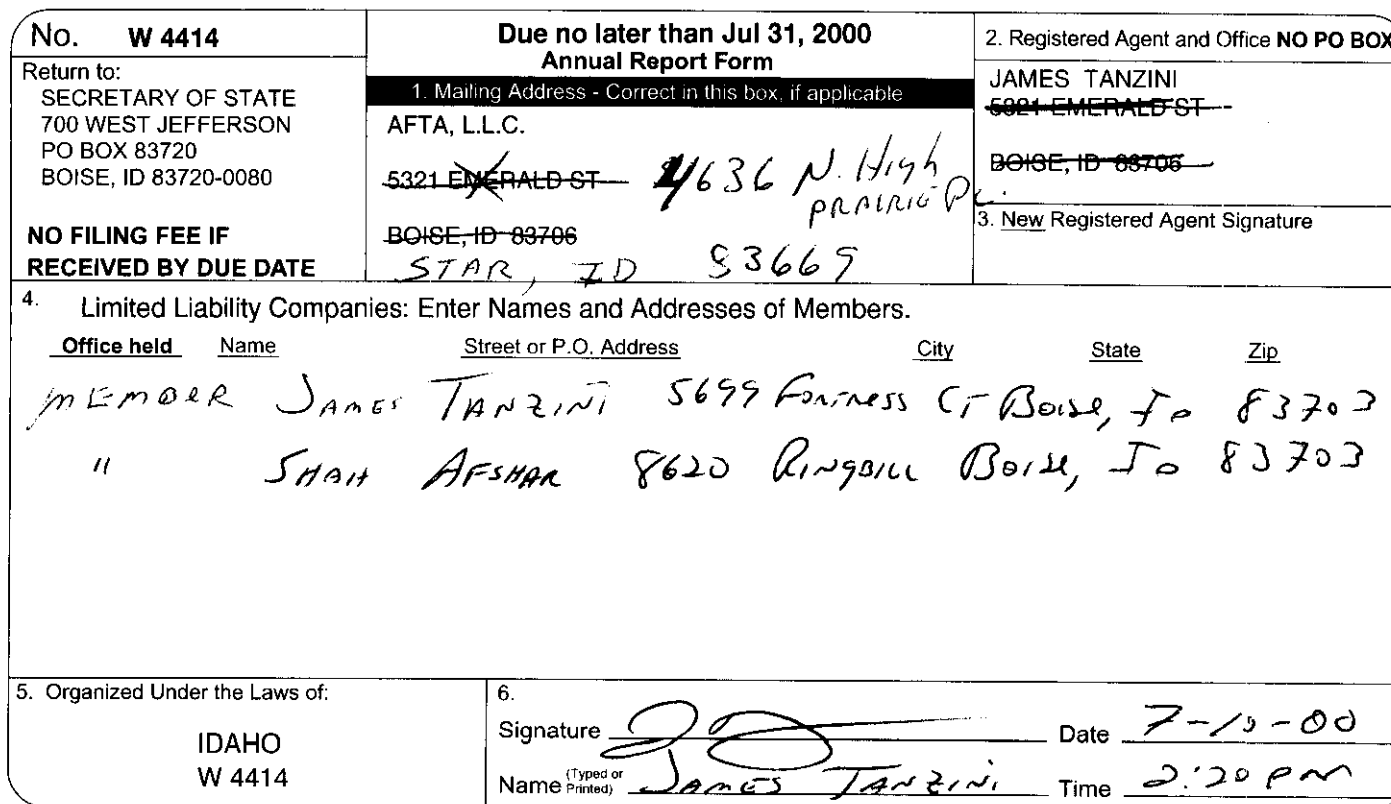 No. W 4414
Return to:
SECRETARY OF STATE
700 WEST JEFFERSON
PO BOX 83720
BOISE, ID 83720-0080
NO FILING FEE IF
RECEIVED BY DUE DATE
Due no later than Jul 31, 2000
Annual Report Form
1. Mailing Address - Correct in this box, if applicable
AFTA, L.L.C.
5321 EMERALD ST 4636 N. High
PRAIRIE PL.
BOISE, ID 83706
STAR, ID 83669
2. Registered Agent and Office NO PO BOX
JAMES TANZINI
5321 EMERALD ST
BOISE, ID 83706
3. New Registered Agent Signature
4. Limited Liability Companies: Enter Names and Addresses of Members.
Office held Name Street or P.O. Address City State Zip
MEMBER JAMES TANZINI 5699 FORTRESS CT BOISE, ID 83703
" SHAH AFSHAR 8620 RINGBILL BOISE, ID 83703
5. Organized Under the Laws of:
IDAHO
W 4414
6.
Signature Date 7-10-00
Name (Typed or Printed) JAMES TANZINI Time 2:20 PM